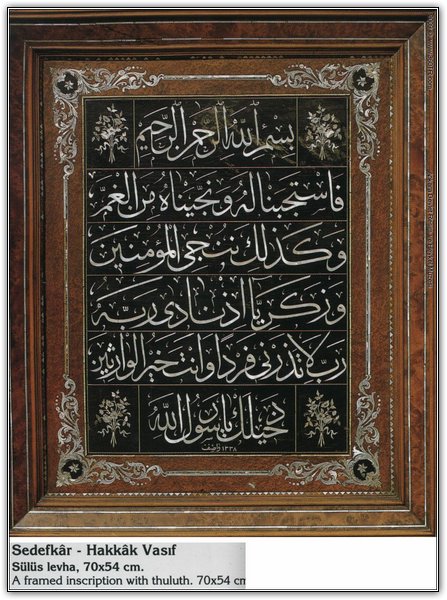 بسم الله الرحمن الرحيم
فاستجبنا له ونجيناه من الغم
وكذلك ننجي المؤمنين
وزكريا اذ نادى ربه
رب لا تذرني فردا وانت خير الوارثين
دخيلك يا رسول الله
١٣٣٨ واصف
Sedefkâr - Hakkâk Vasıf
Sülüs levha, 70x54 cm.
A framed inscription with thuluth. 70x54 cm